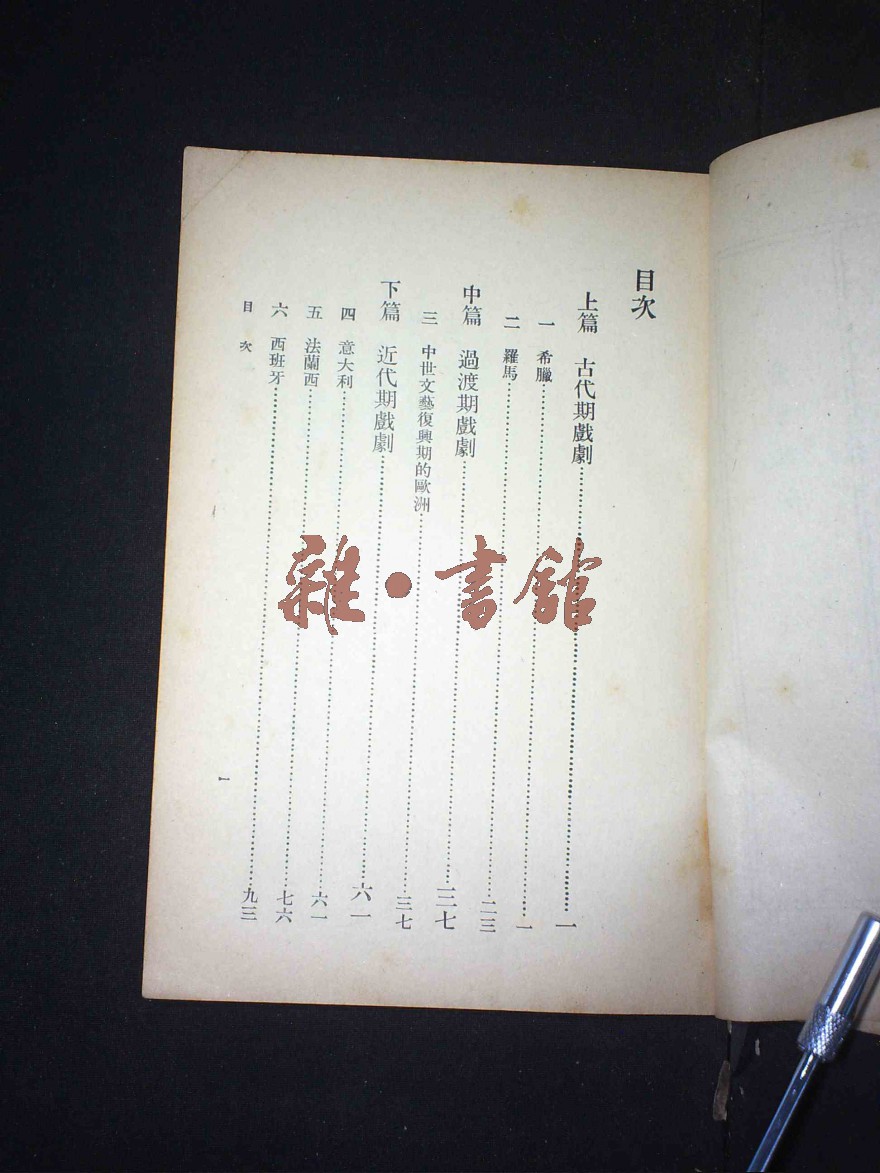 目次
上篇　古代期戲劇……一
一　希臘……一
二　羅馬……二三
中篇　過渡期戲劇……三七
三　中世文藝復興期的歐洲……三七
下篇　近代期戲劇……六一
四　意大利……六一
五　法蘭西……七六
六　西班牙……九三
目次
一
雜・書館